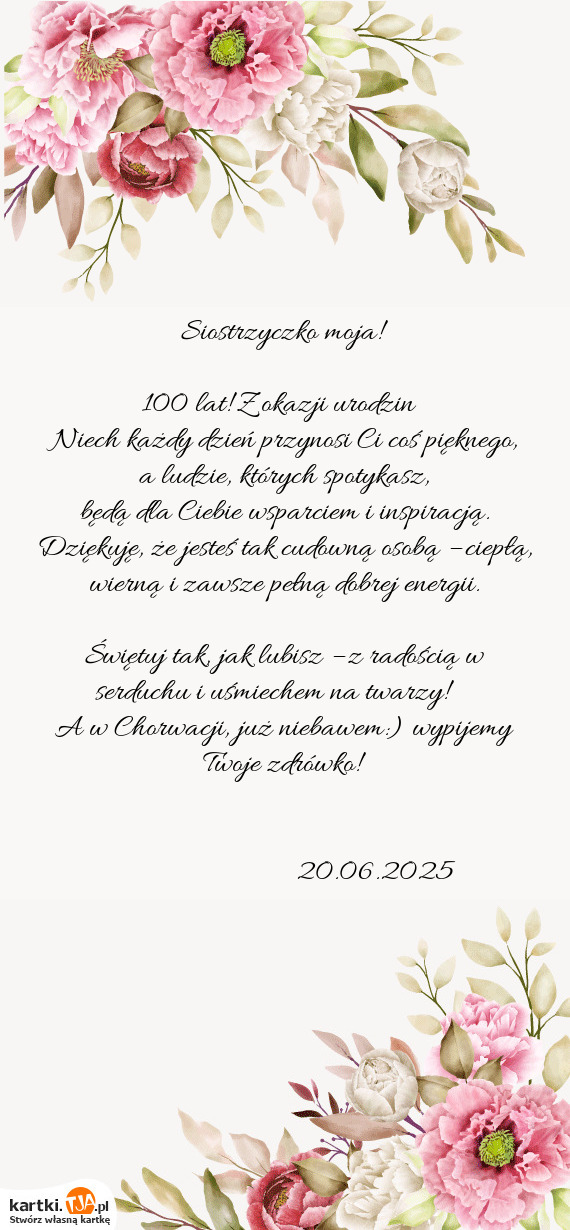 Siostrzyczko moja!
100 lat! Z okazji urodzin
Niech każdy dzień przynosi Ci coś pięknego,
a ludzie, których spotykasz,
będą dla Ciebie wsparciem i inspiracją.
Dziękuję, że jesteś tak cudowną osobą – ciepłą,
wierną i zawsze pełną dobrej energii.
Świętuj tak, jak lubisz – z radością w
serduchu i uśmiechem na twarzy!
A w Chorwacji, już niebawem:) wypijemy
Twoje zdrówko!
20.06.2025
kartki.TJA.pl
Stwórz własną kartkę